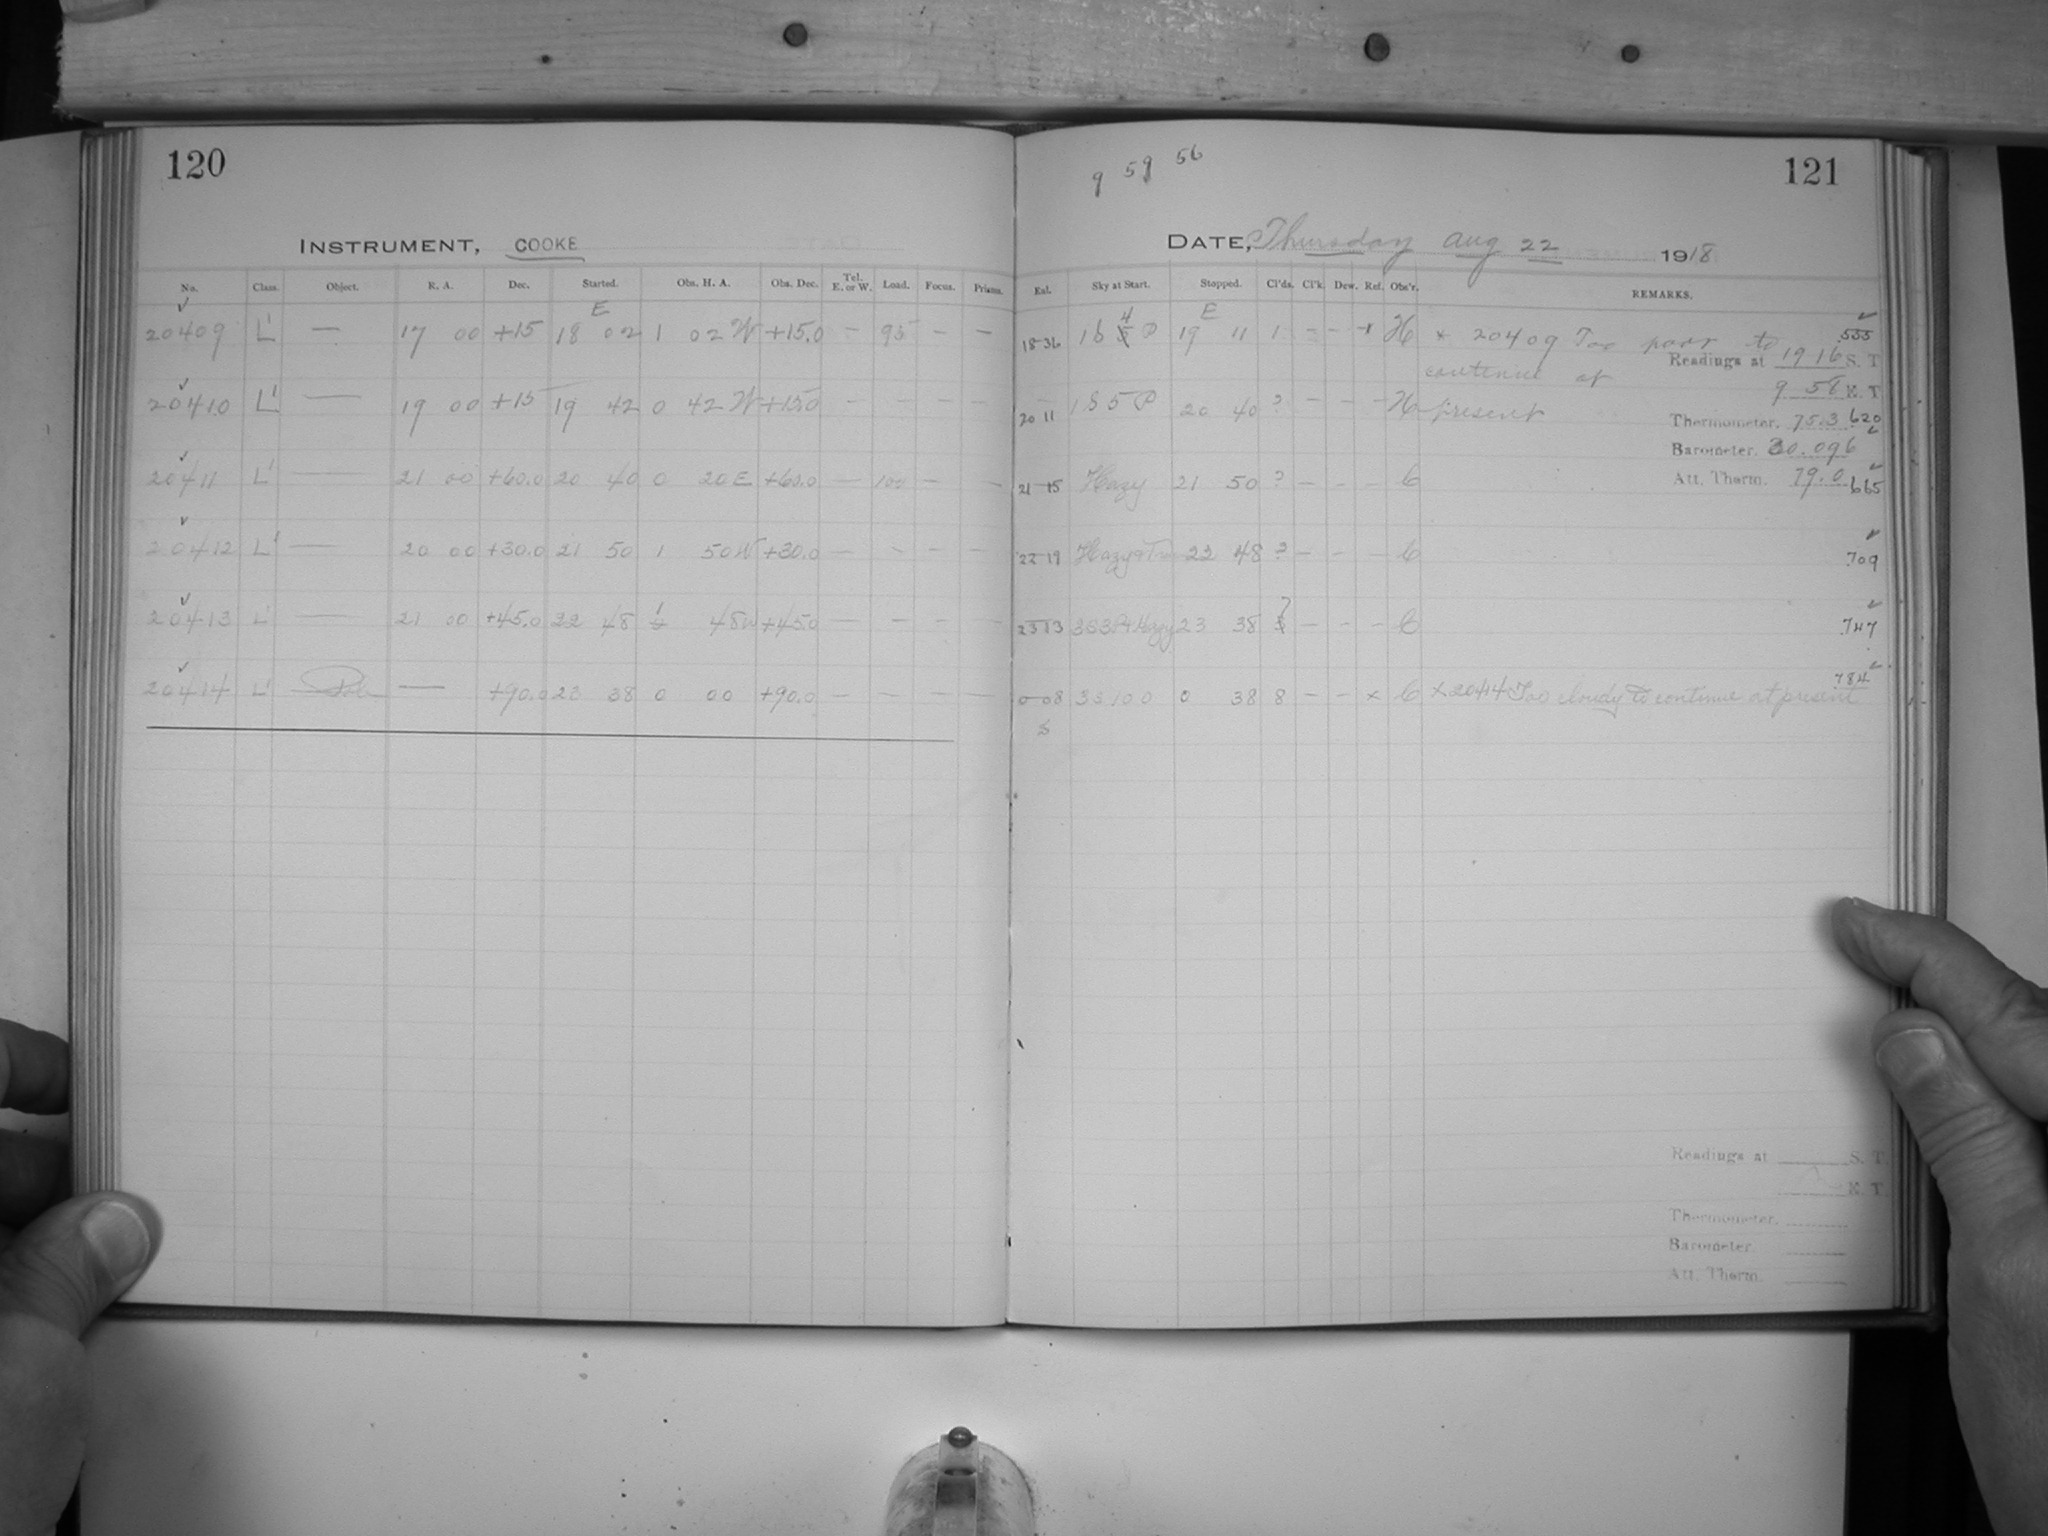 120
INSTRUMENT, COOKE
No. Class. Object. R. A. Dec. Started. Obs. H. A. Obs. Dec. Tel. E. or W. Load. Focus. Prisms.
E
20409 L' — 17 00 +15 18 02 1 02 W +15.0 — 95 — —
20410 L' — 19 00 +15 19 42 0 42 W +15.0 — — — —
20411 L' — 21 00 +60.0 20 40 0 20 E +60.0 — 100 — —
20412 L' — 20 00 +30.0 21 50 1 50 W +30.0 — — — —
20413 L' — 21 00 +45.0 22 48 1 48 W +45.0 — — — —
20414 L' — +90.0 23 38 0 00 +90.0 — — — —
9 59 56
121
DATE, Thursday Aug 22 1918
Exl. Sky at Start. Stopped. Cl'ds. Cl'k. Dew. Ref. Obs'r. REMARKS.
E
18 36 16 4 P 19 11 1 — — H × 20409 Too poor to 555
Readings at 19 16 S. T
continue at
9 58 E. T
20 11 185 P 20 40 ? — — — H present
Thermometer, 75.3 620
Barometer. 30.096
21 15 Hazy 21 50 ? — — — C Att. Therm. 79.0 665
22 19 22 48 ? — — — C 709
23 13 Hazy 23 38 ? — — — C 747
784
0 08 33100 0 38 8 — — × C × 20414 Too cloudy to continue at present
Readings at S. T.
E. T
Thermometer.
Barometer
Att. Therm.